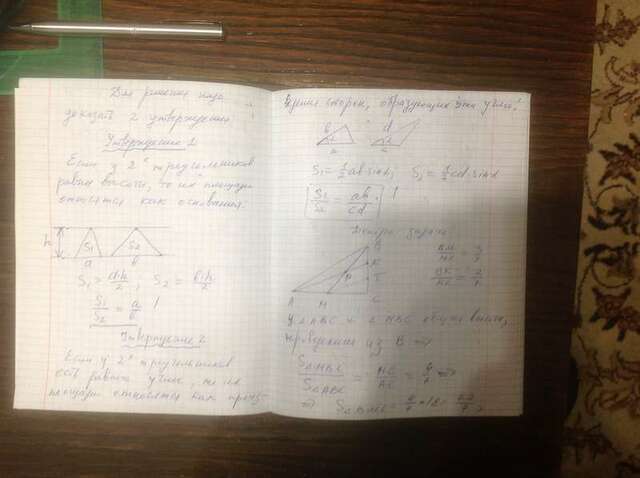 Для решения надо
доказать 2 утверждения
Утверждение 1
Если у 2ˣ треугольников
равны высоты, то их площади
относятся как основания.
h S₁ S₂
a b
S₁ = a·h/2; S₂ = b·h/2
S₁/S₂ = a/b !
Утверждение 2
Если у 2ˣ треугольников
есть равные углы, то их
площади относятся как произ-
ведения сторон, образующих эти углы.
b d
a c
S₁ = 1/2 ab sin α; S₂ = 1/2 cd sin α
S₁/S₂ = ab/cd !
задачи
B
K
A M C
У △ABC и △MBC общая высота,
проведенная из B ⇒
S△MBC/S△ABC = MC/AC = ⇒
⇒ S△MBC =